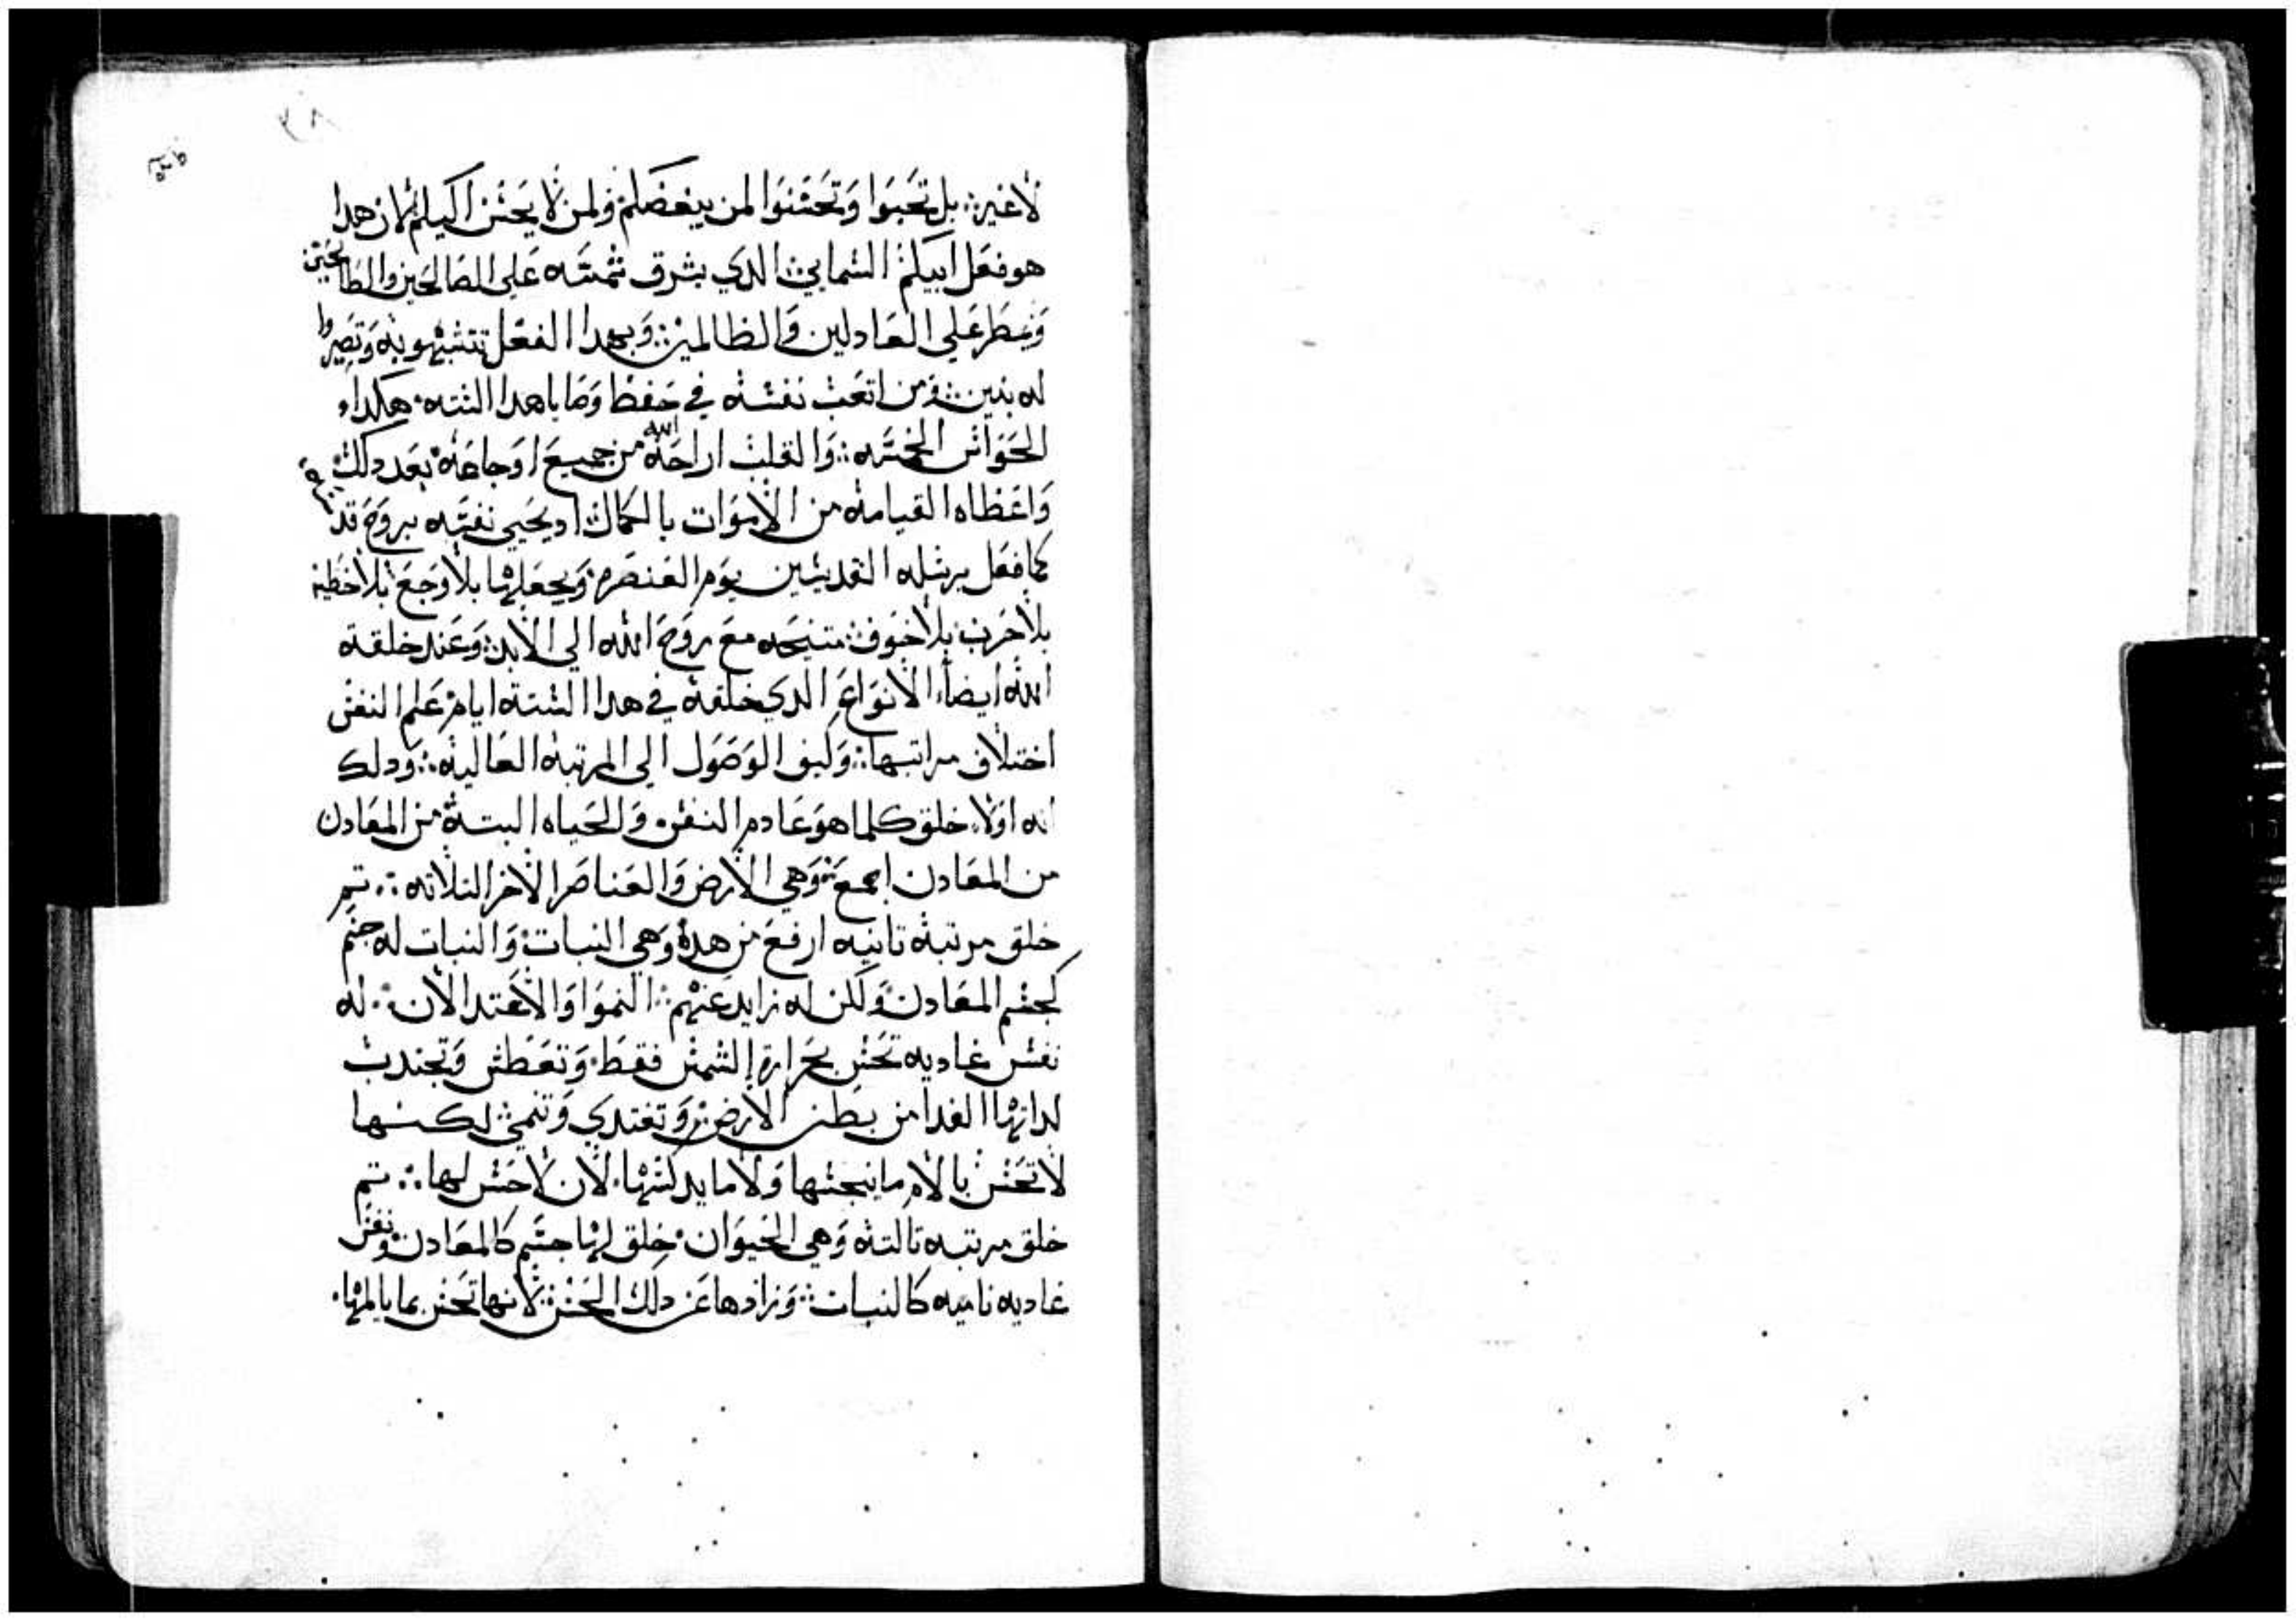 لاغير∴ بل تحبوا وتحسنوا لمن يبغضكم ولمن لا يحسن اكيلم لان هدا
هو فعل ابيكم السمايي الدي يشرق شمسه علي الصالحين والطالحين
ويمطر علي العادلين والظالمين∴ وبهدا الفعل تتشبهو به وتصيروا
له بنين∴ ومن اتعب نفسه في حفظ وصايا هدا السته هكدا
الحواس الخمسه∴ والقلب اراحه الله من جميع اوجاعه بعد دلك
واعطاه القيامه من الاموات بالكمال اد يحيي نفسه بروح قدسه
كما فعل برسله القديسين يوم العنصره ويجعلها بلا وجع بلا خطيه
بلا حزن بلا خوف متنيحه مع روح الله الي الابد وعند خلقة
الله ايضا الانواع الدي خلقه في هدا الستة ايام علم النفس
اختلاف مراتبها∴ وكيف الوصول الي المرتبه العاليه∴ ودلك
انه اولا خلق كلما هو عادم النفس والحياه البتة من المعادن
من المعادن اجمع وهي الارض والعناصر الاخر التلاته∴ تم
خلق مرتبه تانيه ارفع من هده وهي النبات والنبات له جسم
كجسم المعادن ولكن له زايد عنهم∴ النموا والاغتدا لان له
نفس غاديه تحس بحرارة الشمس فقط وتعطش وتجتدب
لداتها الغدا من بطن الارض وتغتدي وتنمي لكنها
لا تحس بالام ما ينجسها ولا ما يدكسها لان لا حس لها∴ تم
خلق مرتبه تالته وهي الحيوان خلق لها جسم كالمعادن ونفس
غاديه ناميه كالنبات∴ وزادها عن دلك الحس لانها تحس بما يالمها